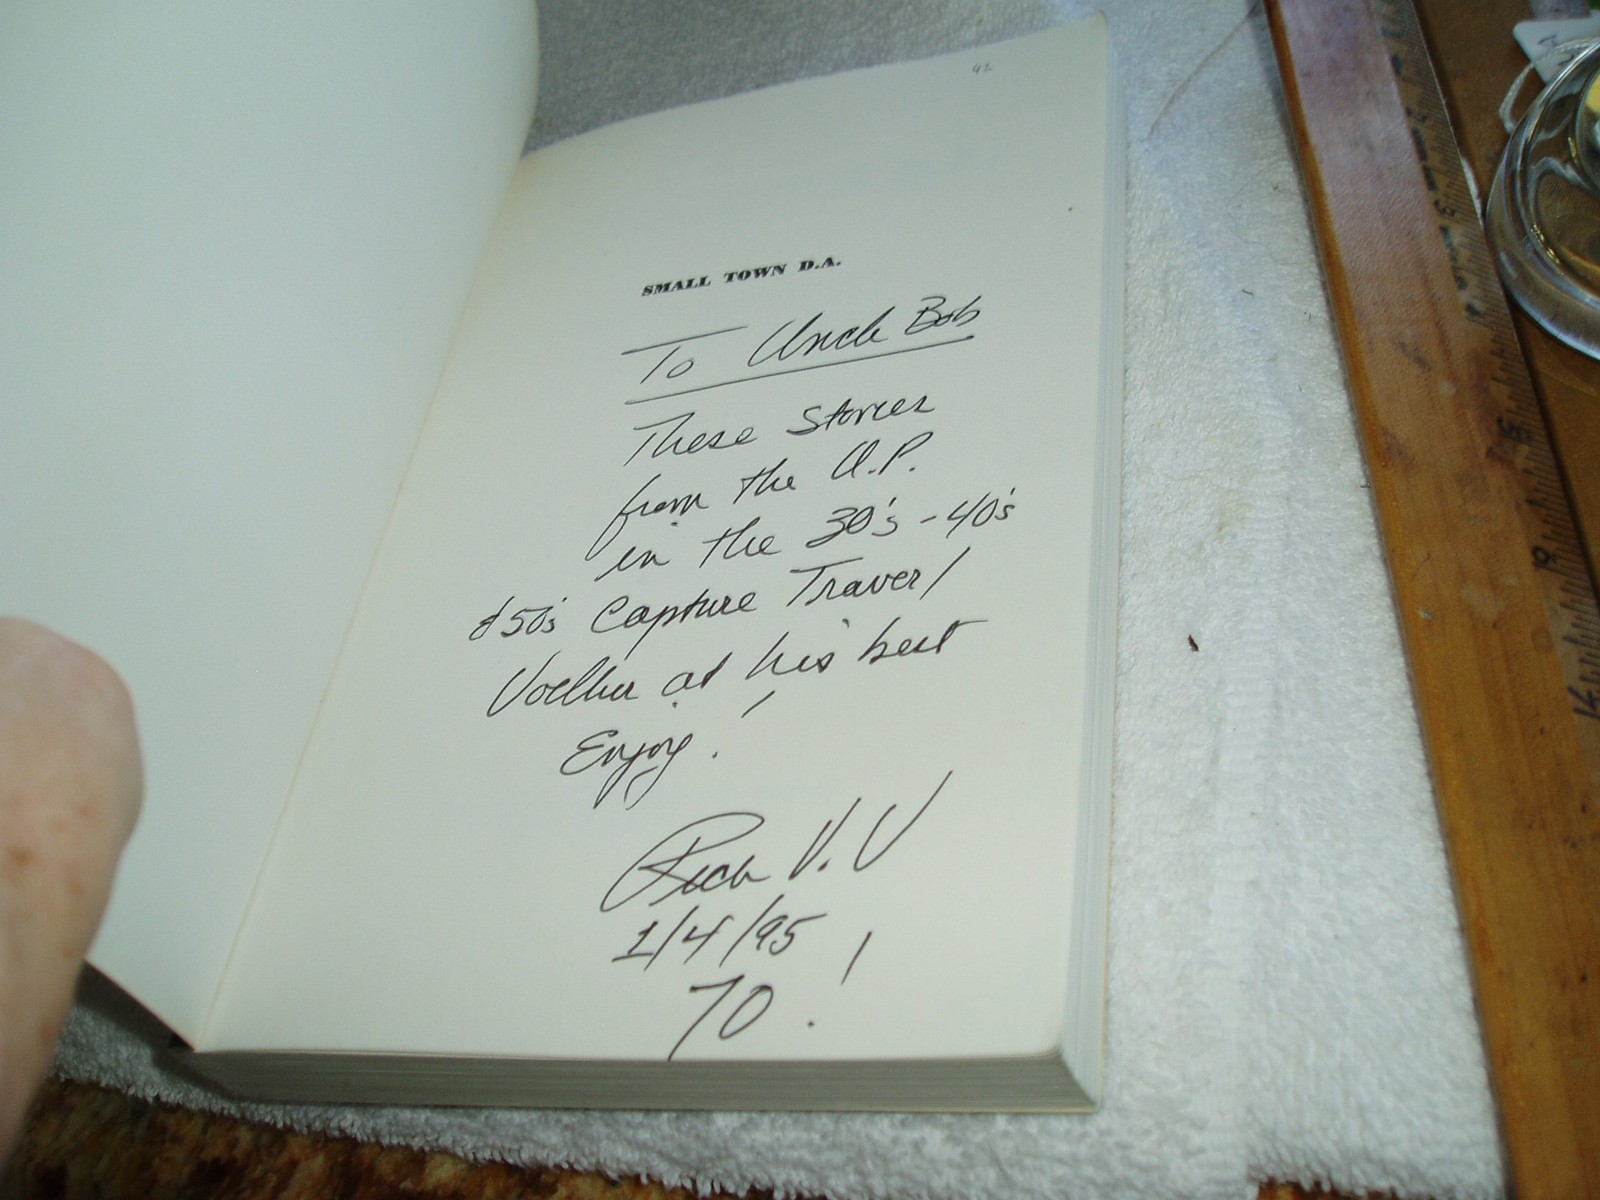 92
SMALL TOWN D.A.
To Uncle Bob
These Stories
from the U.P.
in the 30's - 40's
& 50's Capture Traver/
Voelker at his best
Enjoy!
Rich V. V
1/4/95
70!